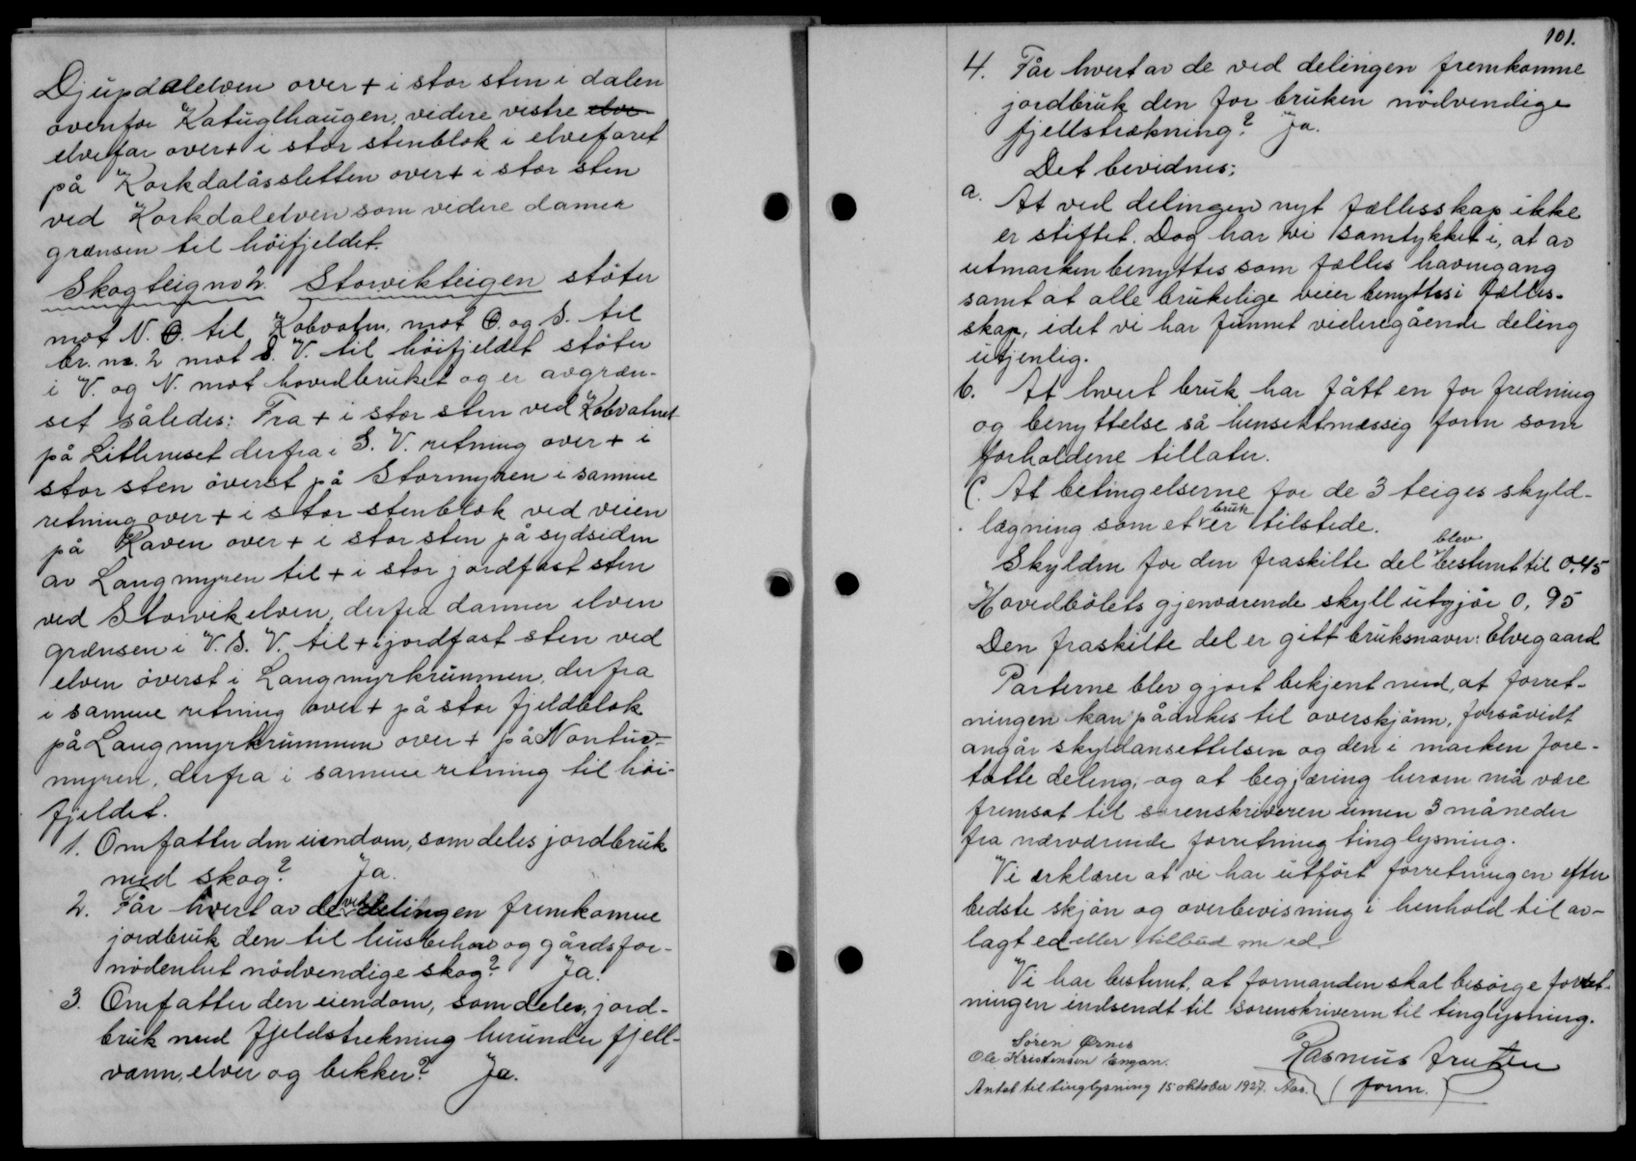 Djupdalelven over + i stor sten i dalen
ovenfor Katuglhaugen, videre vestre elve
elvefar over + i stor stenblok i elvefaret
på Korkdalåssletten over + i stor sten
ved Korkdalelven som videre danner
grænsen til höifjeldet.
Skogteig no 2. Storvikteigen stöter
mot N.Ö. til Kobvatn, mot Ö. og S. til
br. nr. 2 mot S.V. til höifjeldet stöter
i V. og N. mot hovedbruket og er avgræn-
set således: Fra + i stor sten ved Kobvatnet
på Litleneset derfra i S.V. retning over + i
stor sten överst på Stormyren i samme
retning over + i stor stenblok ved veien
på Raven over + i stor sten på sydsiden
av Langmyren til + i stor jordfast sten
ved Storvikelven, derfra danner elven
grænsen i V.S.V. til + i jordfast sten ved
elven överst i Langmyrkrummen, derfra
i samme retning over + på stor fjeldblok
på Langmyrkrummen over + på
myren, derfra i samme retning til höi-
fjeldet.
1. Omfatter den eiendom, som deles jordbruk
med skog? Ja.
2. Får hvert av de ved delingen fremkomne
jordbruk den til husbehov og gårdsfor-
nödenhet nödvendige skog? Ja.
3. Omfatter den eiendom, som deles, jord-
bruk med fjeldstrekning herunder fjell-
vann, elver og bekker? Ja.
101.
4. Får hvert av de ved delingen fremkomne
jordbruk den for bruken nödvendige
fjellstrækning? Ja.
Det bevidnes:
a. At ved delingen nyt fællesskap ikke
er stiftet. Dog har vi samtykket i, at av
utmarken benyttes som fælles havnegang
samt at alle brukelige veier benyttes i fælles-
skap, idet vi har funnet videregående deling
utjenlig.
b. At hvert bruk har fått en for fredning
og benyttelse så hensektmæssig form som
forholdene tillater.
C. At betingelserne for de 3 teiges skyld-
lægning som et bruk er tilstede.
Skylden for den fraskilte del blev bestemt til 0,45
Hovedbölets gjenværende skyll utgjör 0,95
Den fraskilte del er gitt bruksnavn: Elvegaard
Parterne blev gjort bekjent med, at forret-
ningen kan påankes til overskjönn, forsåvidt
angår skyldansettelsen og den i marken fore-
tatte deling, og at begjæring herom må være
fremsat til sorenskriveren innen 3 måneder
fra nærværende forretning tinglysning.
Vi erklærer at vi har utfört forretningen efter
bedste skjön og overbevisning i henhold til av-
lagt ed eller tilbud om ed.
Vi har bestemt, at formanden skal besörge forret-
ningen indsendt til sorenskriveren til tinglysning.
Sören Ørnes
Ole Kristensen Engan.
Rasmus
(form.)
Antat til tinglysning 15 oktober 1927. Aas.